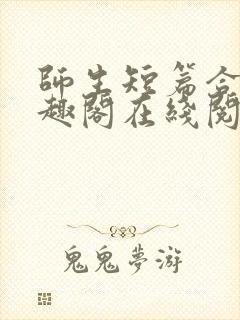 師生短篇合
趣閣在綫閱
鬼鬼夢游